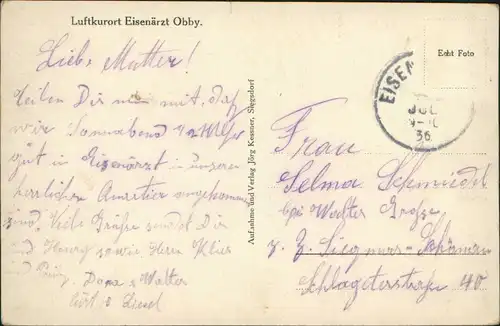 Luftkurort Eisenärzt Obby.
Liebe Mutter!
Teilen Dir nun mit, daß
wir Sonnabend 1/2 Uhr
gut in Eisenärzt in unserem
herrlichen Quartier angekommen
sind. Viele Grüße sendet Dir
und Herrn
und Dora & Walter
Aufnahme und Verlag Jörg Kessner, Siegsdorf
Echt Foto
EISEN
JUL
36
Frau
Selma Schmiedl
bei Walter Große
z. Z. Siegmar-Schönau
Schlageterstraße 40